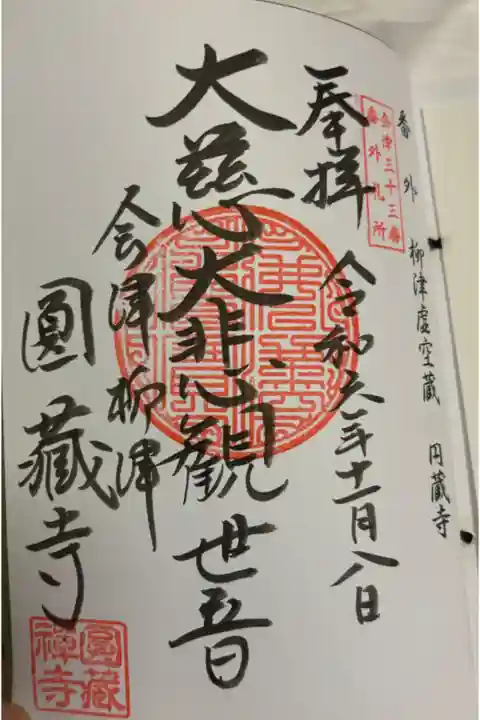 番外 柳津虚空蔵 円蔵寺
会津三十三番
番外札所
奉拝
令和六年十一月八日
大慈大悲觀世音
会津柳津
圓藏寺
圓藏
禅寺